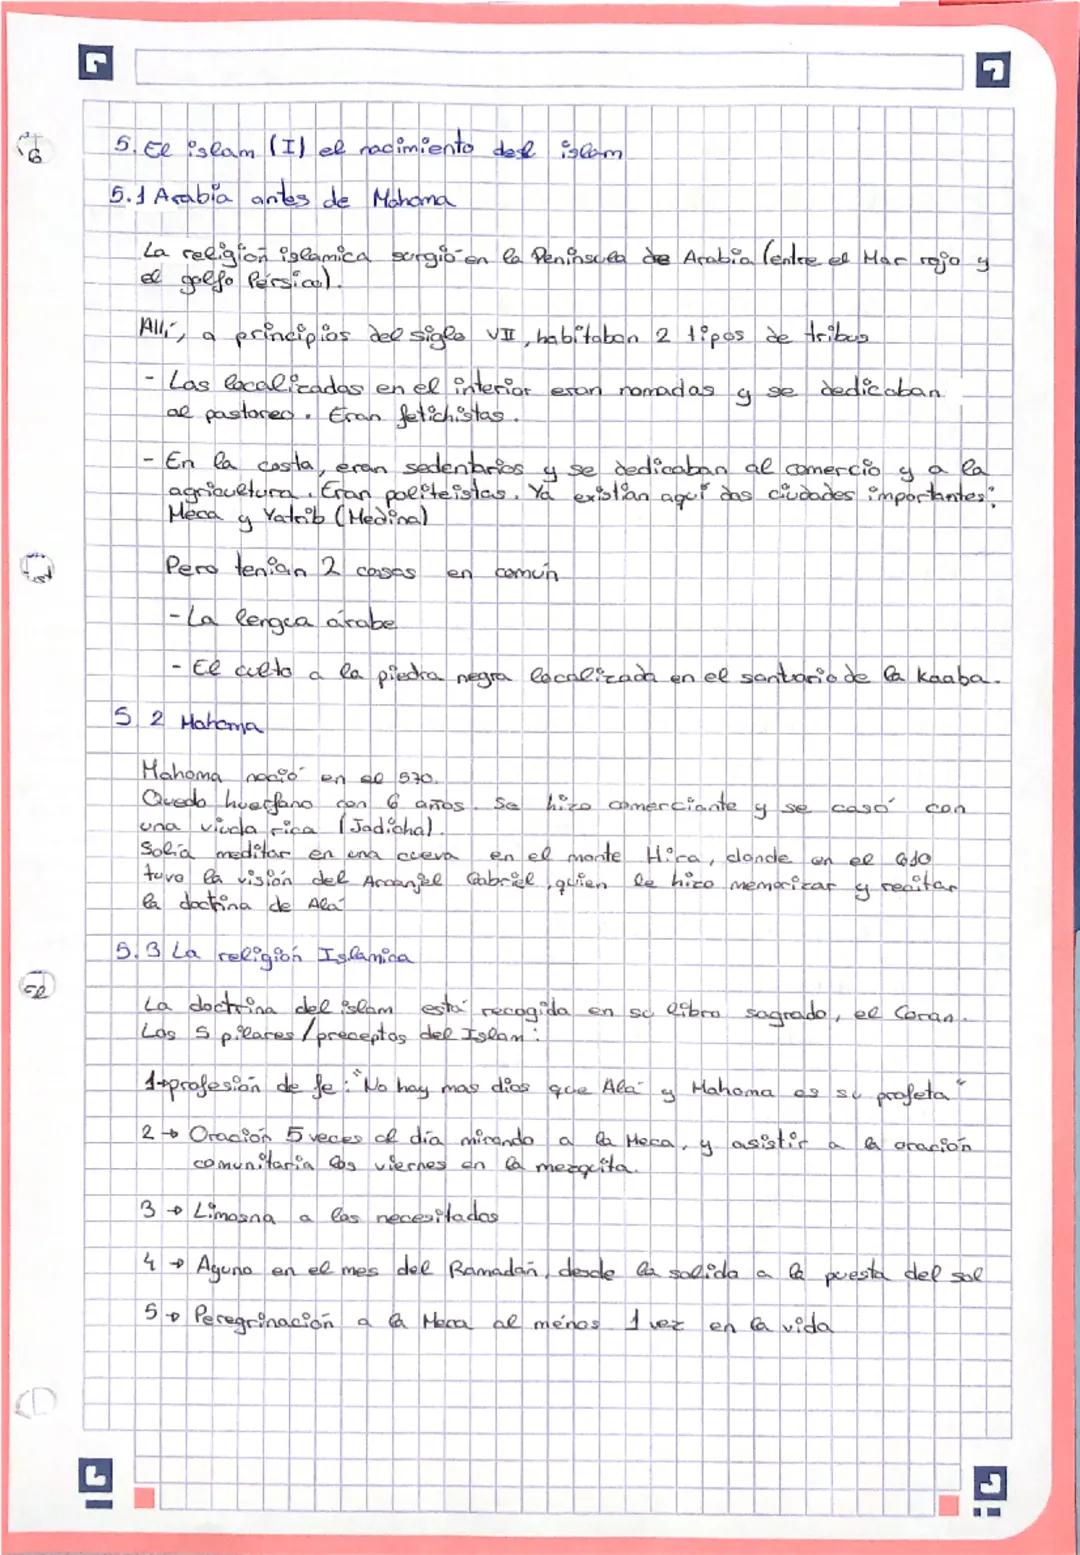 5. El islam (I) el nacimiento del islam
5.1 Arabia antes de Mahoma
La religión islamica surgió en la Península de Arabia (entre el Mar rojo y
el golfo Pérsico).
Allí, a principios del siglo VII, habitaban 2 tipos de tribus
- Las localizadas en el interior eran nomadas y se dedicaban
al pastoreo. Eran fetichistas.
- En la costa, eran sedentarios y se dedicaban al comercio y a la
agricultura. Eran politeistas. Ya existían aquí dos ciudades importantes:
Meca y Yatrib (Medina)
Pero tenían 2 cosas en común
- La lengua árabe
- El culto a la piedra negra localizada en el santuario de la kaaba.
5.2 Mahoma
Mahoma nació en el 570.
Quedo huerfano con 6 años. Se hizo comerciante y se casó con
una viuda rica (Jadicha).
Solía meditar en una cueva en el monte Hira, donde en el 610
tuvo la visión del Arcangel Gabriel, quien le hizo memorizar y recitar
la doctrina de Alá
5.3 La religión Islamica
La doctrina del islam está recogida en su libro sagrado, el Coran.
Los 5 pilares/preceptos del Islam:
1→profesión de fe: "No hay mas dios que Alá y Mahoma es su profeta"
2→ Oración 5 veces al día mirando a la Meca, y asistir a la oración
comunitaria los viernes en la mezquita.
3→ Limosna a los necesitados
4→ Ayuno en el mes del Ramadán, desde la salida a la puesta del sol
5→ Peregrinación a la Meca al menos 1 vez en la vida